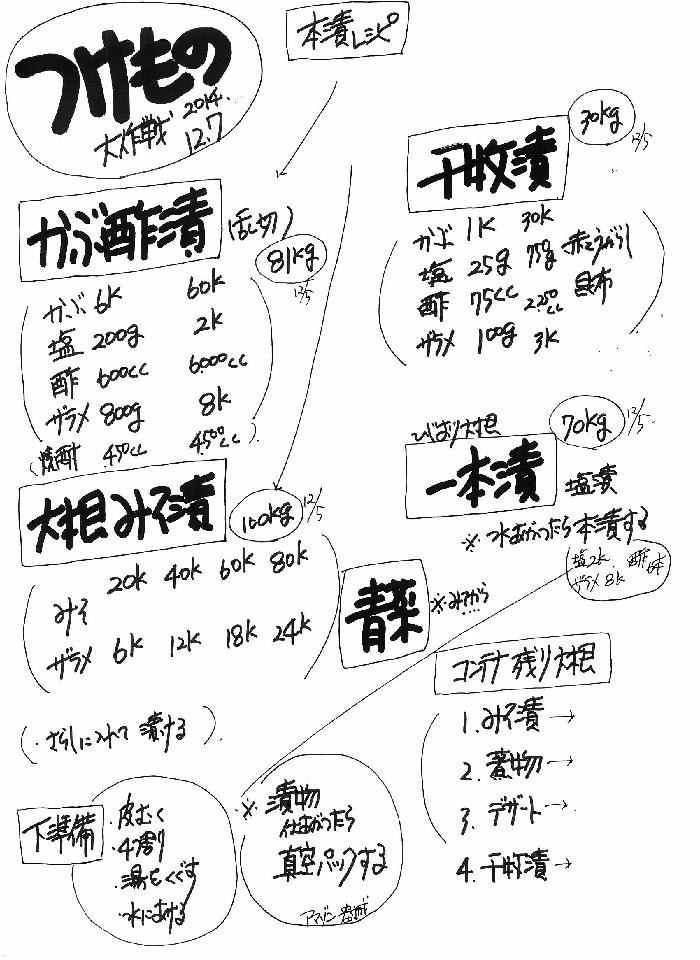 つけもの
大作戦 2014.
12.7
本漬レシピ
かぶ酢漬 (乱切)
81kg
12/5
かぶ 6K 60K
塩 200g 2K
酢 600cc 6000cc
ザラメ 800g 8K
(焼酎 450cc 4500cc)
千枚漬
30kg
12/5
かぶ 1K 30K
塩 25g 75g 赤とうがらし
酢 75cc 2.250cc 昆布
ザラメ 100g 3K
大根みそ漬
160kg
12/5
20K 40K 60K 80K
みそ
ザラメ 6K 12K 18K 24K
(・さらしに入れて漬ける)
一本漬 塩漬
70kg
12/5
※水あがったら本漬する
塩2K 酢
ザラメ 8K
青菜
コンテナ残り大根
1. みそ漬→
2. 煮物→
3. デザート→
4. 千枚漬→
下準備
・皮むく
・4つ割り
・湯をくぐす
・水にあける
※漬物
仕あがったら
真空パックする